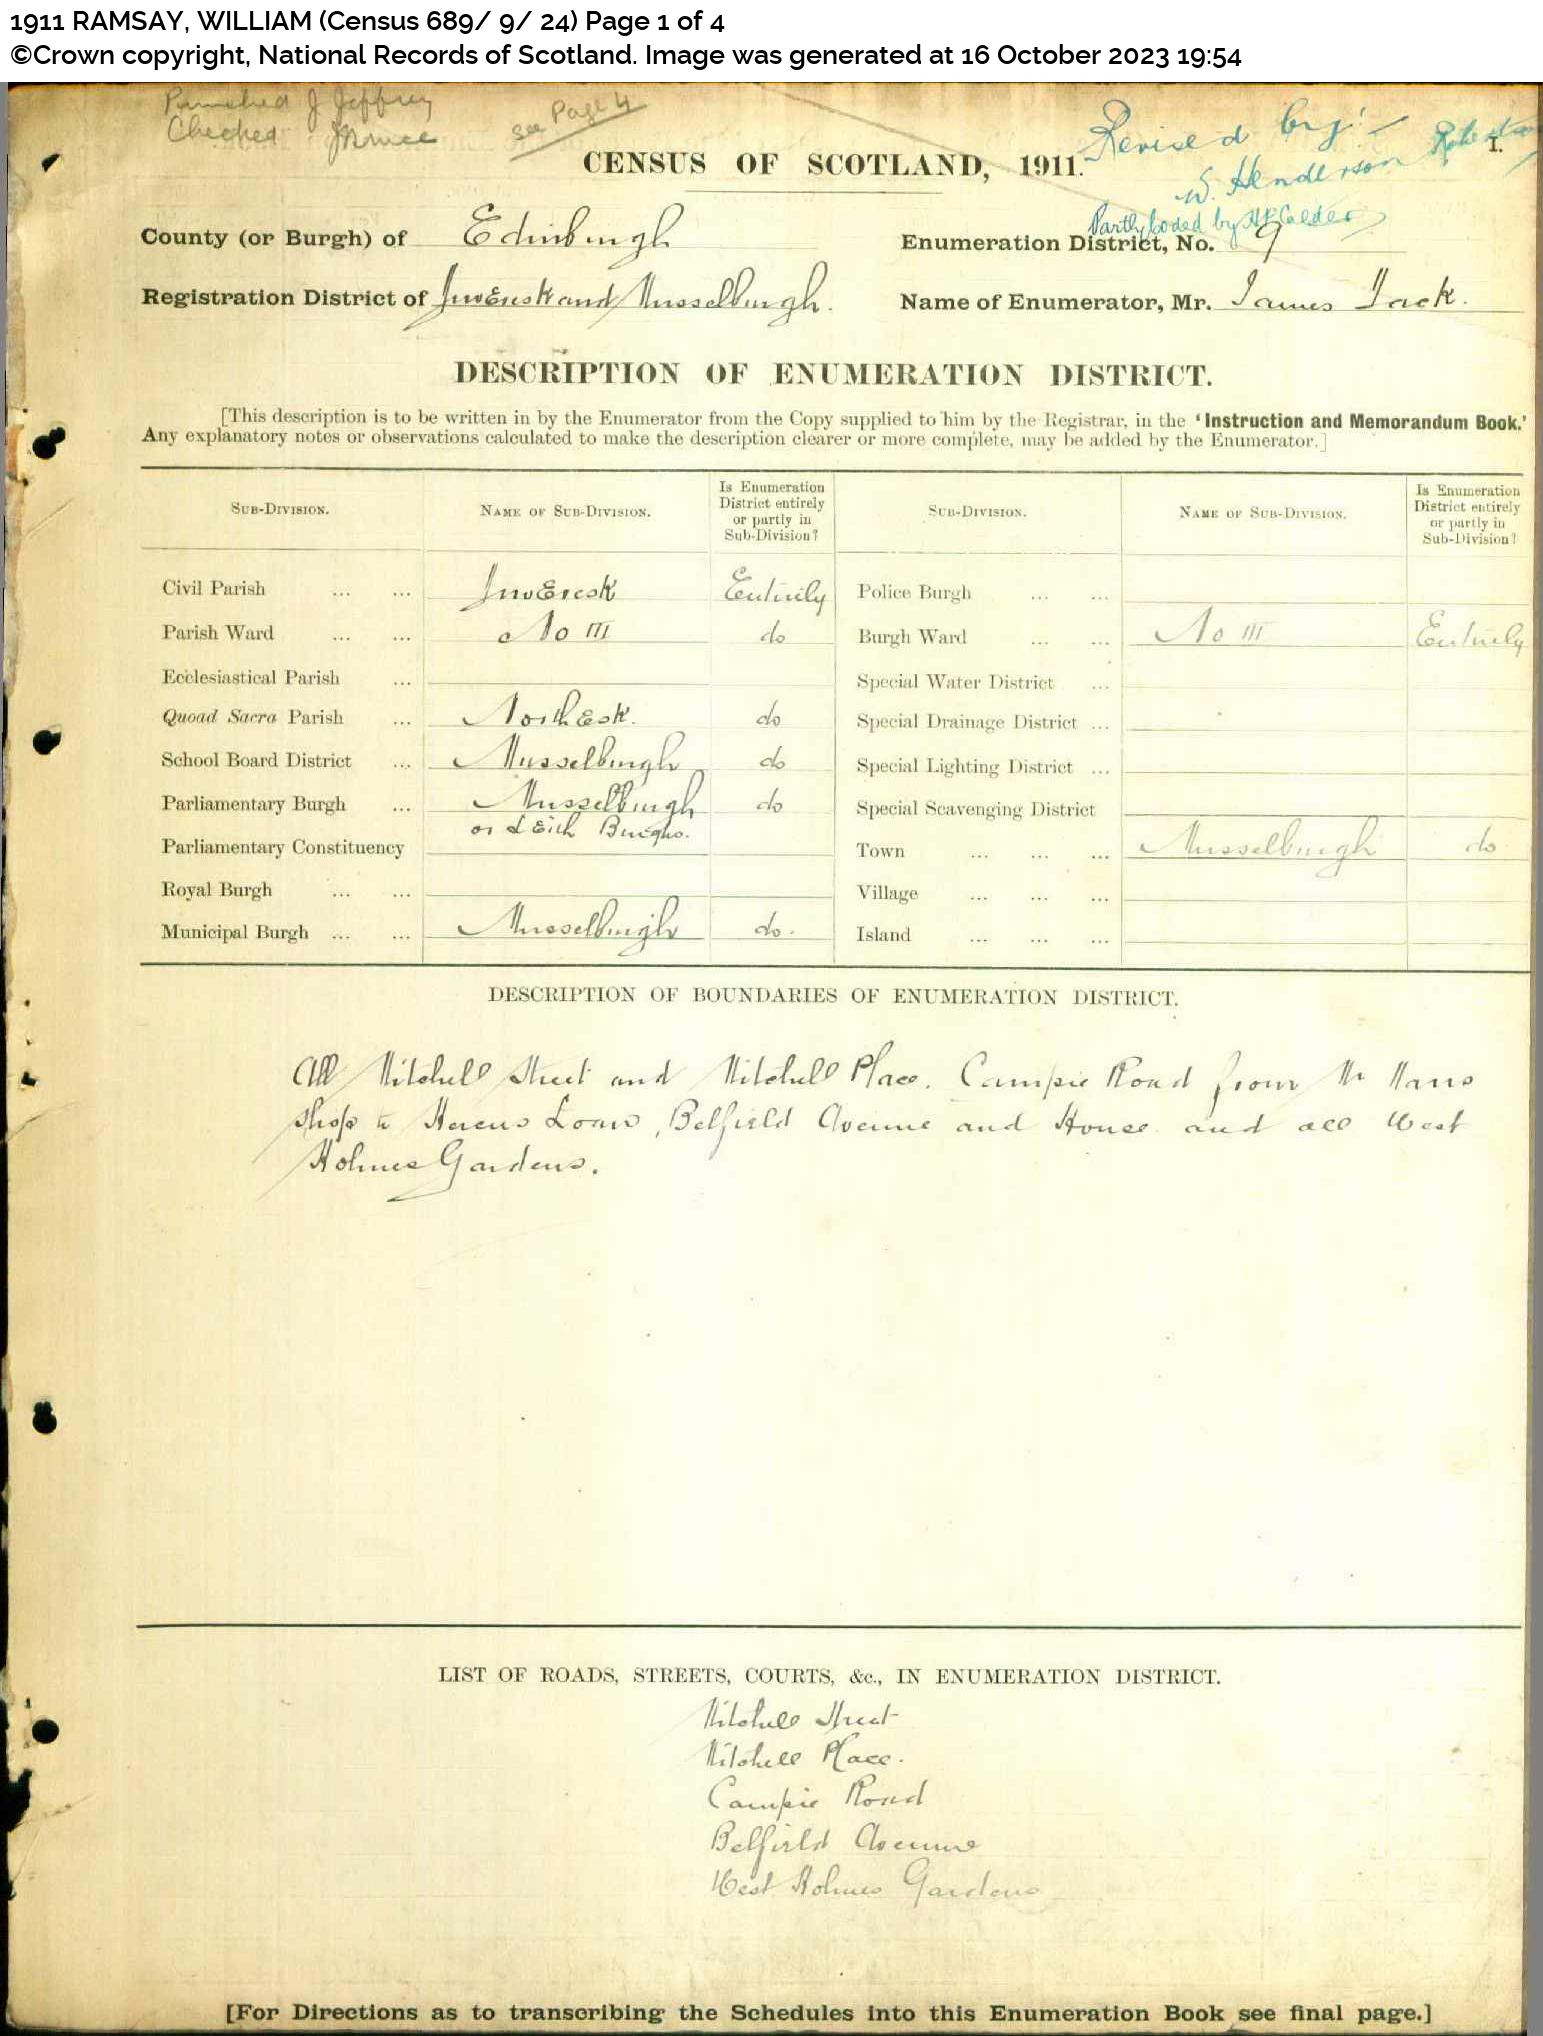 1911 RAMSAY, WILLIAM (Census 689/ 9/ 24) Page 1 of 4
©Crown copyright, National Records of Scotland. Image was generated at 16 October 2023 19:54
Punched J Jeffrey
Checked
see Page 4
Revised by:
W. Henderson
Partly Coded by
I.
CENSUS OF SCOTLAND, 1911.
County (or Burgh) of Edinburgh
Enumeration District, No. 9
Registration District of Inveresk and Musselburgh.
Name of Enumerator, Mr. James Jack.
DESCRIPTION OF ENUMERATION DISTRICT.
[This description is to be written in by the Enumerator from the Copy supplied to him by the Registrar, in the 'Instruction and Memorandum Book.'
Any explanatory notes or observations calculated to make the description clearer or more complete, may be added by the Enumerator.]
SUB-DIVISION. NAME OF SUB-DIVISION. Is Enumeration District entirely or partly in Sub-Division? SUB-DIVISION. NAME OF SUB-DIVISION. Is Enumeration District entirely or partly in Sub-Division?
Civil Parish ... ... Inveresk Entirely Police Burgh ... ...
Parish Ward ... ... No III do Burgh Ward ... ... No III Entirely
Ecclesiastical Parish ... Special Water District ...
Quoad Sacra Parish ... North Esk. do Special Drainage District ...
School Board District ... Musselburgh do Special Lighting District ...
Parliamentary Burgh ... Musselburgh do Special Scavenging District
or Leith Burghs.
Parliamentary Constituency Town ... ... ... Musselburgh do
Royal Burgh ... ... Village ... ... ...
Municipal Burgh ... ... Musselburgh do. Island ... ... ...
DESCRIPTION OF BOUNDARIES OF ENUMERATION DISTRICT.
All Mitchell Street and Mitchell Place. Campie Road from Mr
shop to Loan, Belfield Avenue and House and all West
Holmes Gardens.
LIST OF ROADS, STREETS, COURTS, &c., IN ENUMERATION DISTRICT.
Mitchell Street
Mitchell Place.
Campie Road
Belfield Avenue
West Holmes Gardens
[For Directions as to transcribing the Schedules into this Enumeration Book see final page.]